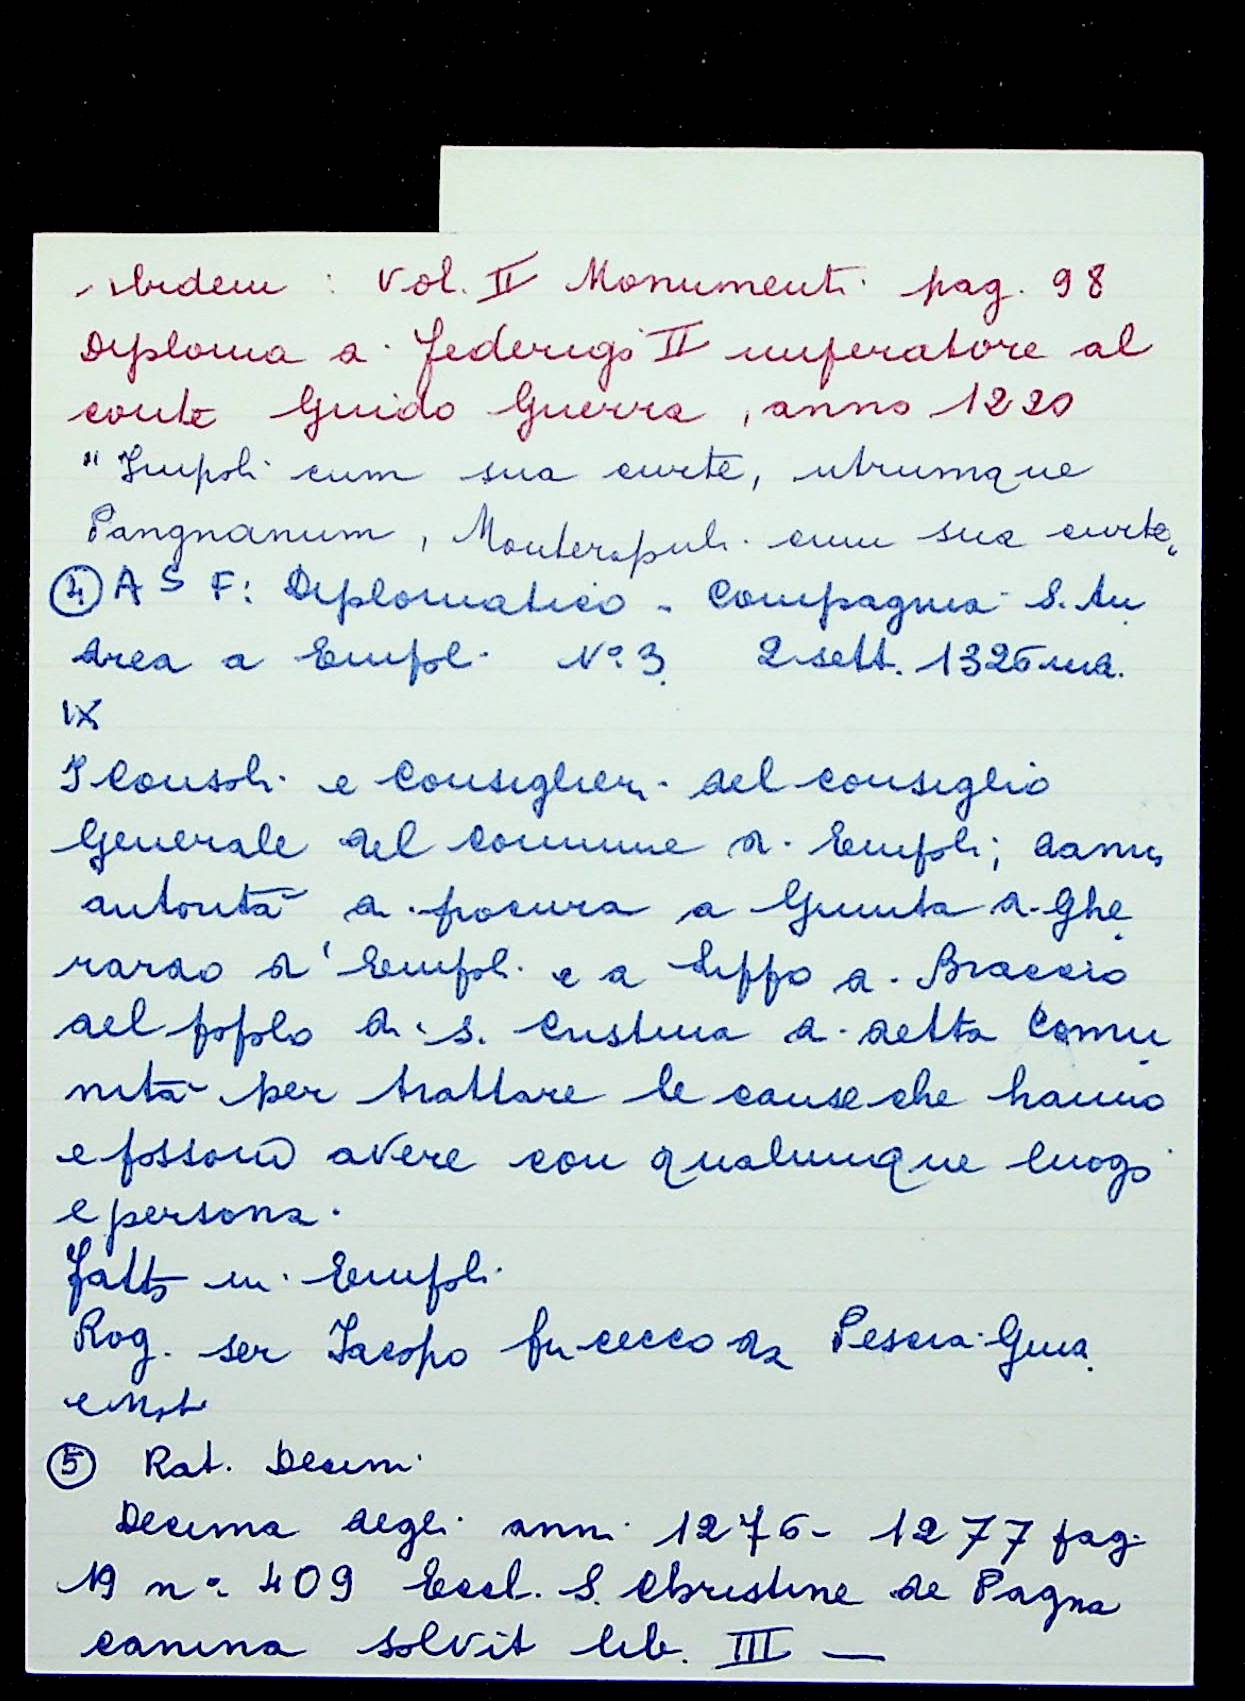 Ibidem : Vol. II Monumenti pag. 98
Diploma di Federigo II imperatore al
conte Guido Guerra, anno 1220
"Impoli cum sua curte, utrumque
Pangnanum, Monterapuli cum sua curte"
④ A S F: Diplomatico - Compagnia S. An
drea a Empoli N° 3 2 sett. 1325
IX
I Consoli e Consiglieri del consiglio
Generale del Comune di Empoli; danno
autorità di procura a Giunta di Ghe
rardo d'Empoli e a Lippo di Braccio
del popolo di S. Cristina di detta Comu
nità per trattare le cause che hanno
e possono avere con qualunque luogo
e persona.
Fatto in Empoli
Rog. ser Iacopo fu Cecco da Pescia Giud.
e Not.
⑤ Rat. Decim.
Decima degli anni 1276- 1277 pag.
19 n° 409 Eccl. S. Christine de Pagna
canina solvit lib. III —